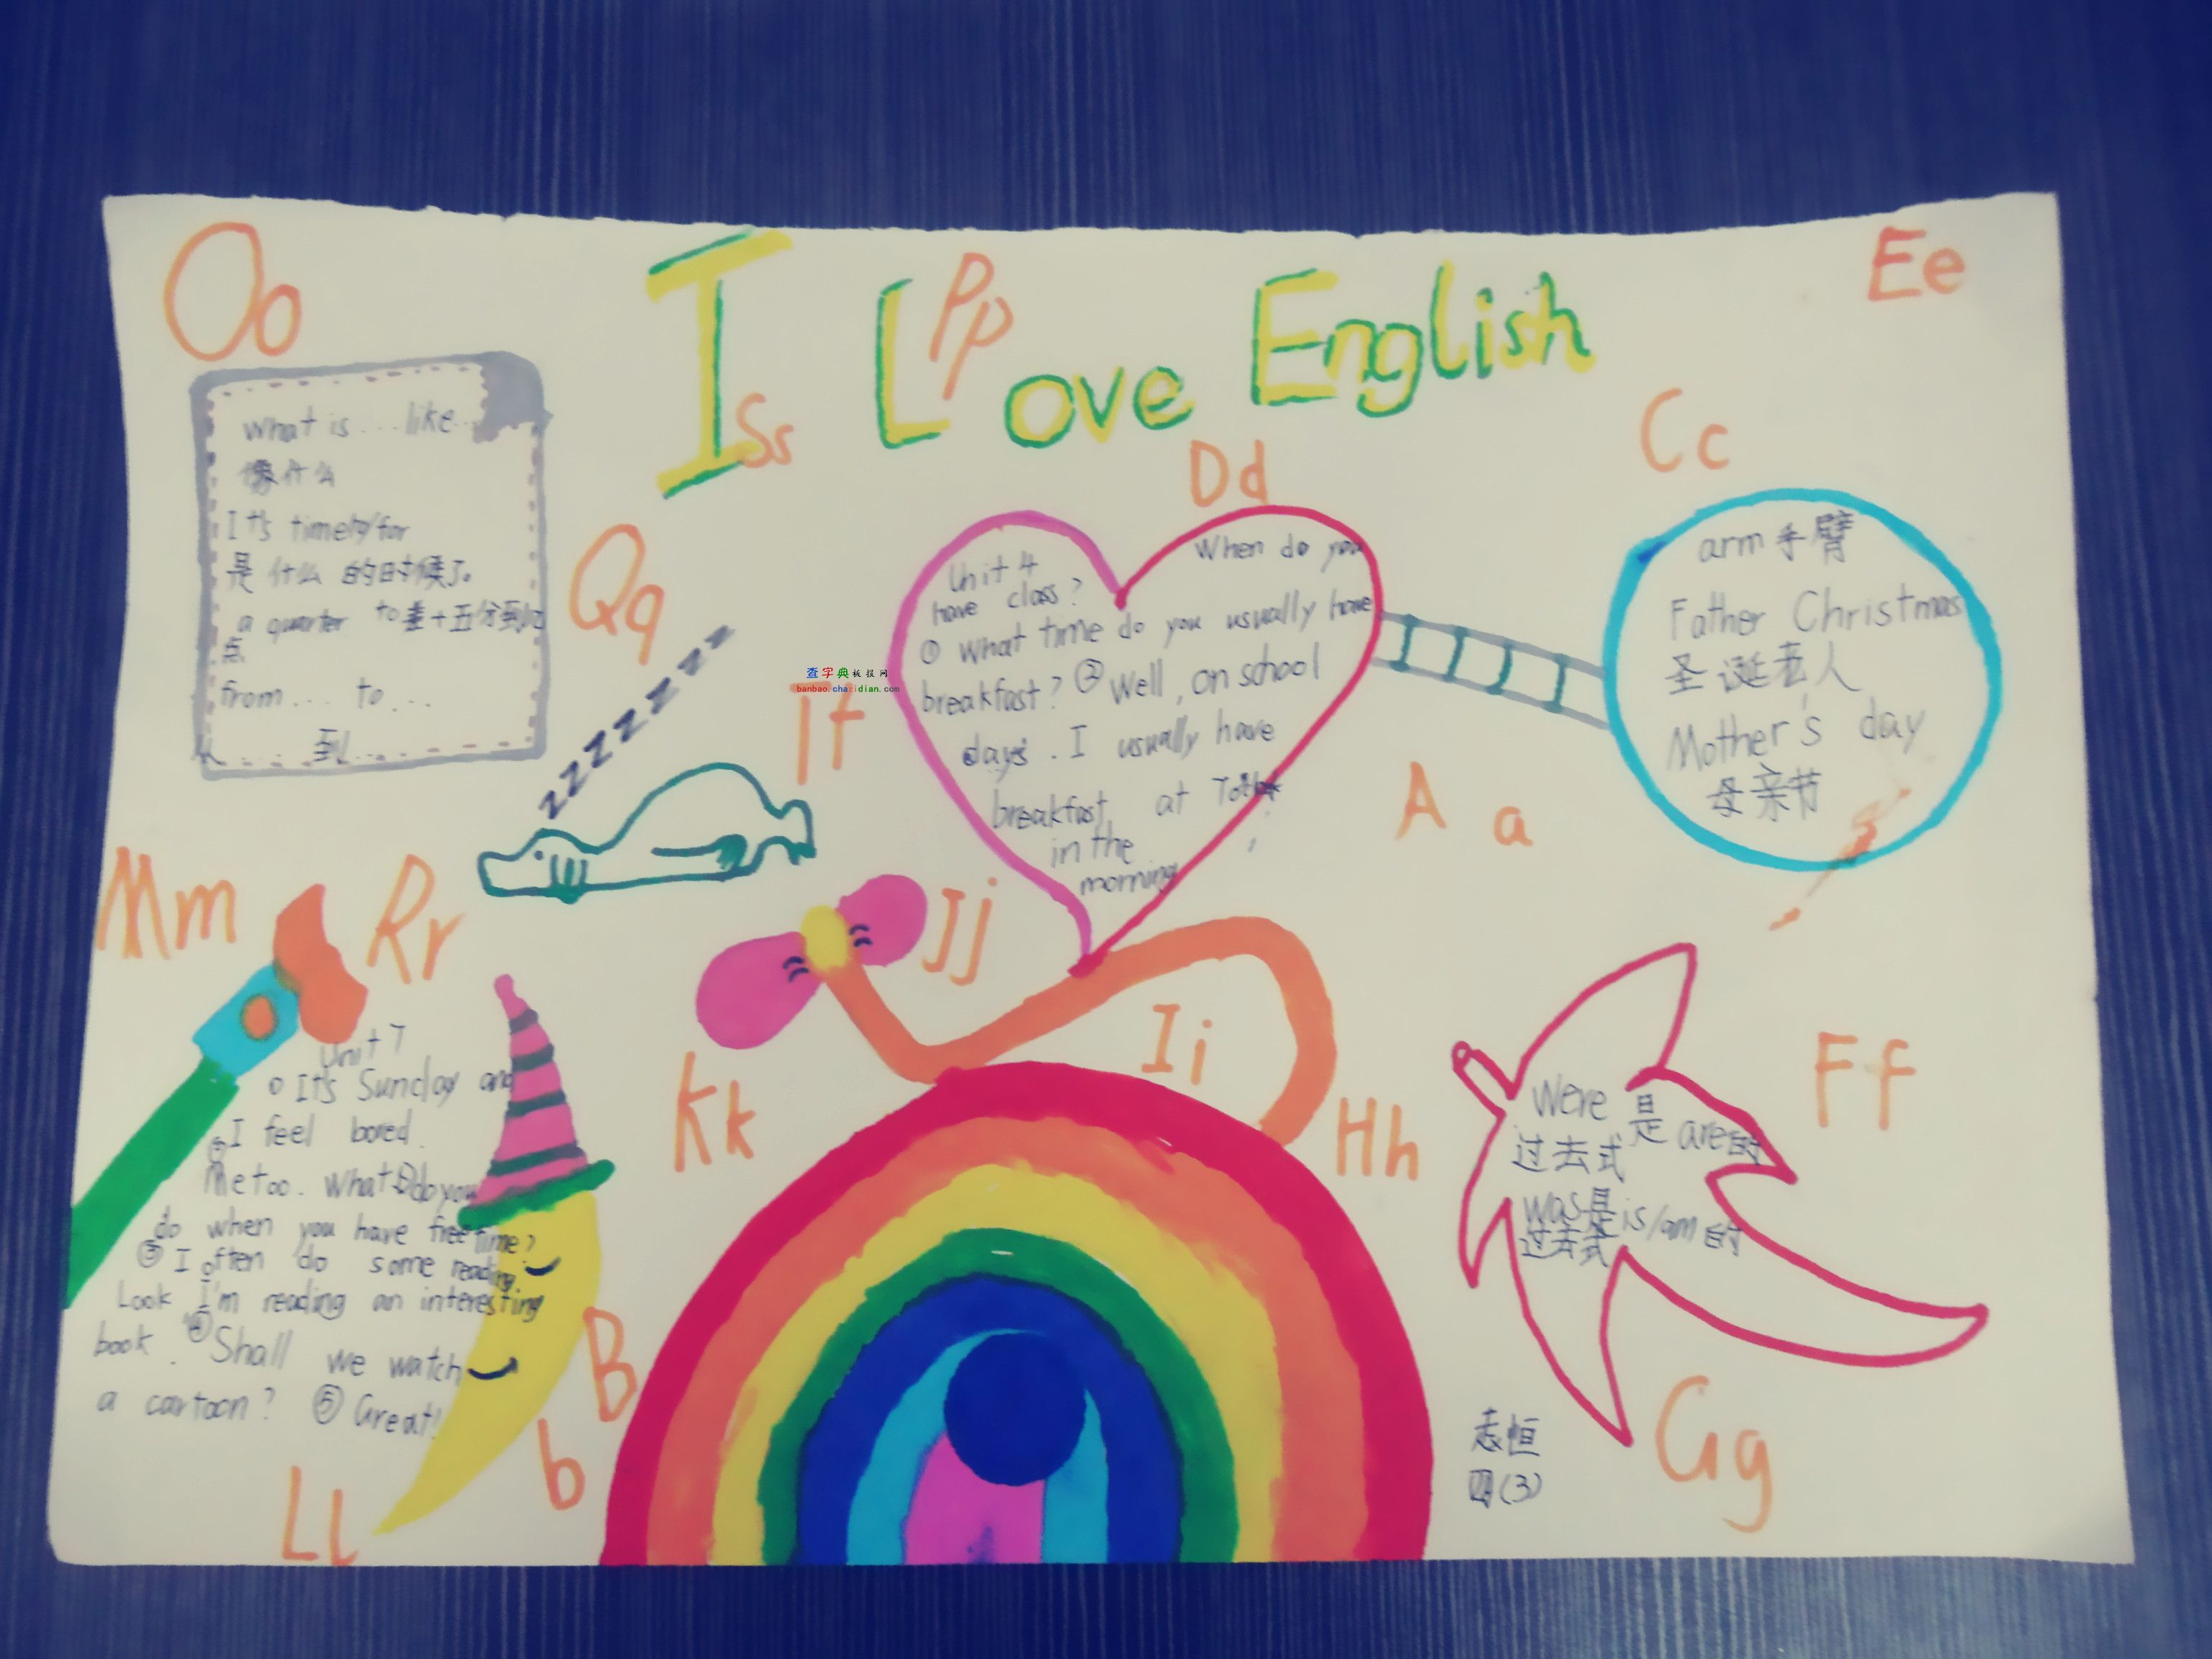 Oo
I Love English
Pp
Ss
Ee
Cc
Dd
What is ... like ...
像什么
It's time to/for
是什么的时候了。
a quarter to差十五分到几
点
from... to...
从......到...
Qq
zzzzzzzz
查字典板报网
banbao.chazidian.com
Unit 4 When do you
have class?
① What time do you usually have
breakfast? ② Well, on school
days. I usually have
breakfast at
in the
morning
arm手臂
Father Christmas
圣诞老人
Mother's day
母亲节
A a
Mm
Rr
Jj
Ii
Kk
Hh
Ff
Unit 7
① It's Sunday and
I feel bored.
②
Me too. What do you
do when you have free time?
③ I often do some reading
Look I'm reading an interesting
book. ④ Shall we watch
a cartoon? ⑤ Great!
Were 是 are的
过去式
was是is/am的
过去式
B
b
Ll
Gg
志恒
四(3)